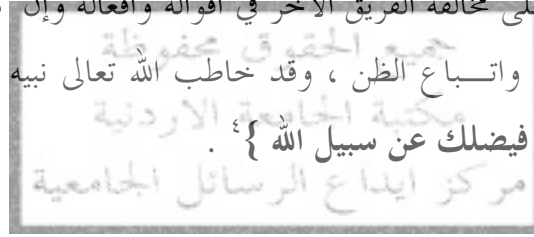 لى مخالفة الفريق الآخر في أقواله وأفعاله وإن
جميع الحقوق محفوظة
واتـــباع الظن ، وقد خاطب الله تعالى نبيه
مكتبة الجامعة الاردنية
فيضلك عن سبيل الله }٤ .
مركز ايداع الرسائل الجامعية